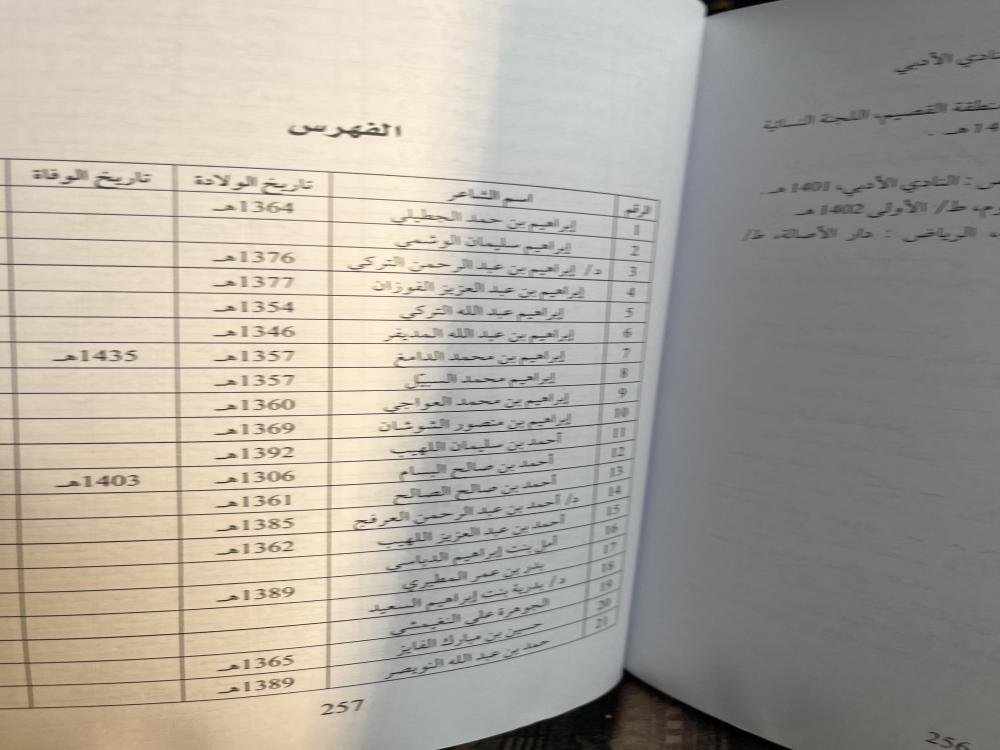 النادي الأدبي
منطقة القصيم، اللجنة النسائية
هـ .
: النادي الأدبي، 1401 هـ
ط/ الأولى 1402 هـ
الرياض : دار الأصالة، ط/
256
الفهرس
الرقم اسم الشاعر تاريخ الولادة تاريخ الوفاة
1 إبراهيم بن حمد الجطيلي 1364هـ
2 إبراهيم سليمان الوشمي
3 د/ إبراهيم بن عبد الرحمن التركي 1376هـ
4 إبراهيم بن عبد العزيز الفوزان 1377هـ
5 إبراهيم عبد الله التركي 1354هـ
6 إبراهيم بن عبد الله المديقر 1346هـ
7 إبراهيم بن محمد الدامغ 1357هـ 1435هـ
8 إبراهيم محمد السبيّل 1357هـ
9 إبراهيم بن محمد العواجي 1360هـ
10 إبراهيم بن منصور الشوشان 1369هـ
11 أحمد بن سليمان اللهيب 1392هـ
12 أحمد بن صالح البسام 1306هـ 1403هـ
13 أحمد بن صالح الصالح 1361هـ
14 د/ أحمد بن عبد الرحمن العرفج 1385هـ
15 أحمد بن عبد العزيز اللهيب 1362هـ
16 أمل بنت إبراهيم الدباسي
17 بدر بن عمر المطيري 1389هـ
18 د/ بدرية بنت إبراهيم السعيد
19 الجوهرة علي النغيمشي
20 حسين بن مبارك الفايز 1365هـ
21 حمد بن عبد الله النويصر 1389هـ
257